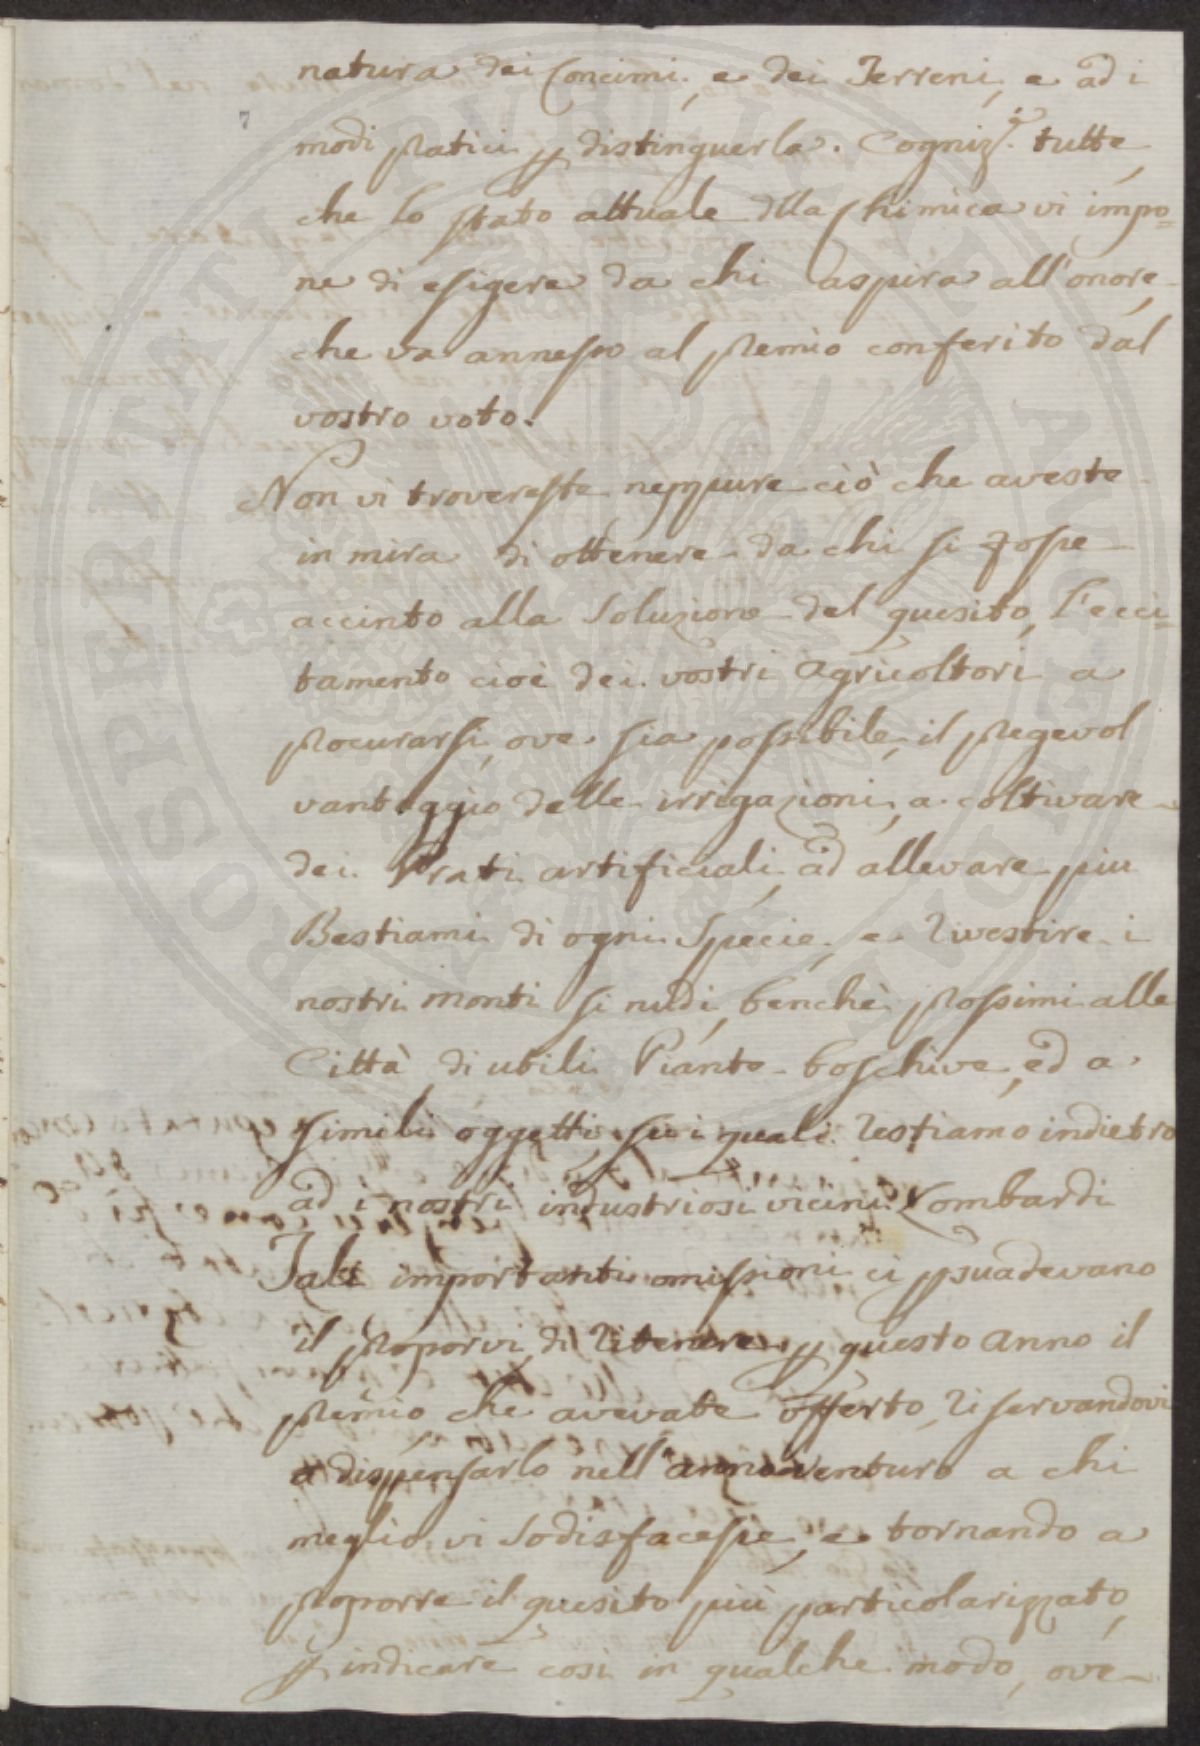 natura dei Concimi, e dei Terreni, e ad i
7
modi pratici p distinguerla. Cogniz.i tutte,
che lo stato attuale dlla Chimica vi impo=
ne di esigere da chi aspira all'onore,
che va annesso al premio conferito dal
vostro voto.
Non vi trovereste neppure ciò che aveste
in mira di ottenere da chi si fosse
accinto alla Soluzione del quesito, l'ecci=
tamento cioè dei vostri Agricoltori a
procurarsi, ove sia possibile, il pregevol
vantaggio delle irrigazioni, a coltivare
dei Prati artificiali, ad allevare più
Bestiami di ogni Specie, e rivestire i
nostri monti sì nudi, benchè prossimi alle
Città di utili Piante boschive, ed a
simili oggetti, su i quali restiamo indietro
ad i nostri industriosi vicini Lombardi
Tali importanti omissioni ci psuadevano
il proporvi di ritenere p questo Anno il
premio che avevate offerto, riservandovi
a dispensarlo nell'anno venturo a chi
meglio vi sodisfacesse, e tornando a
proporre il quesito più particolarizzato,
p indicare così in qualche modo, ove
PROSPERITATI PUBLICAE AUGENDAE